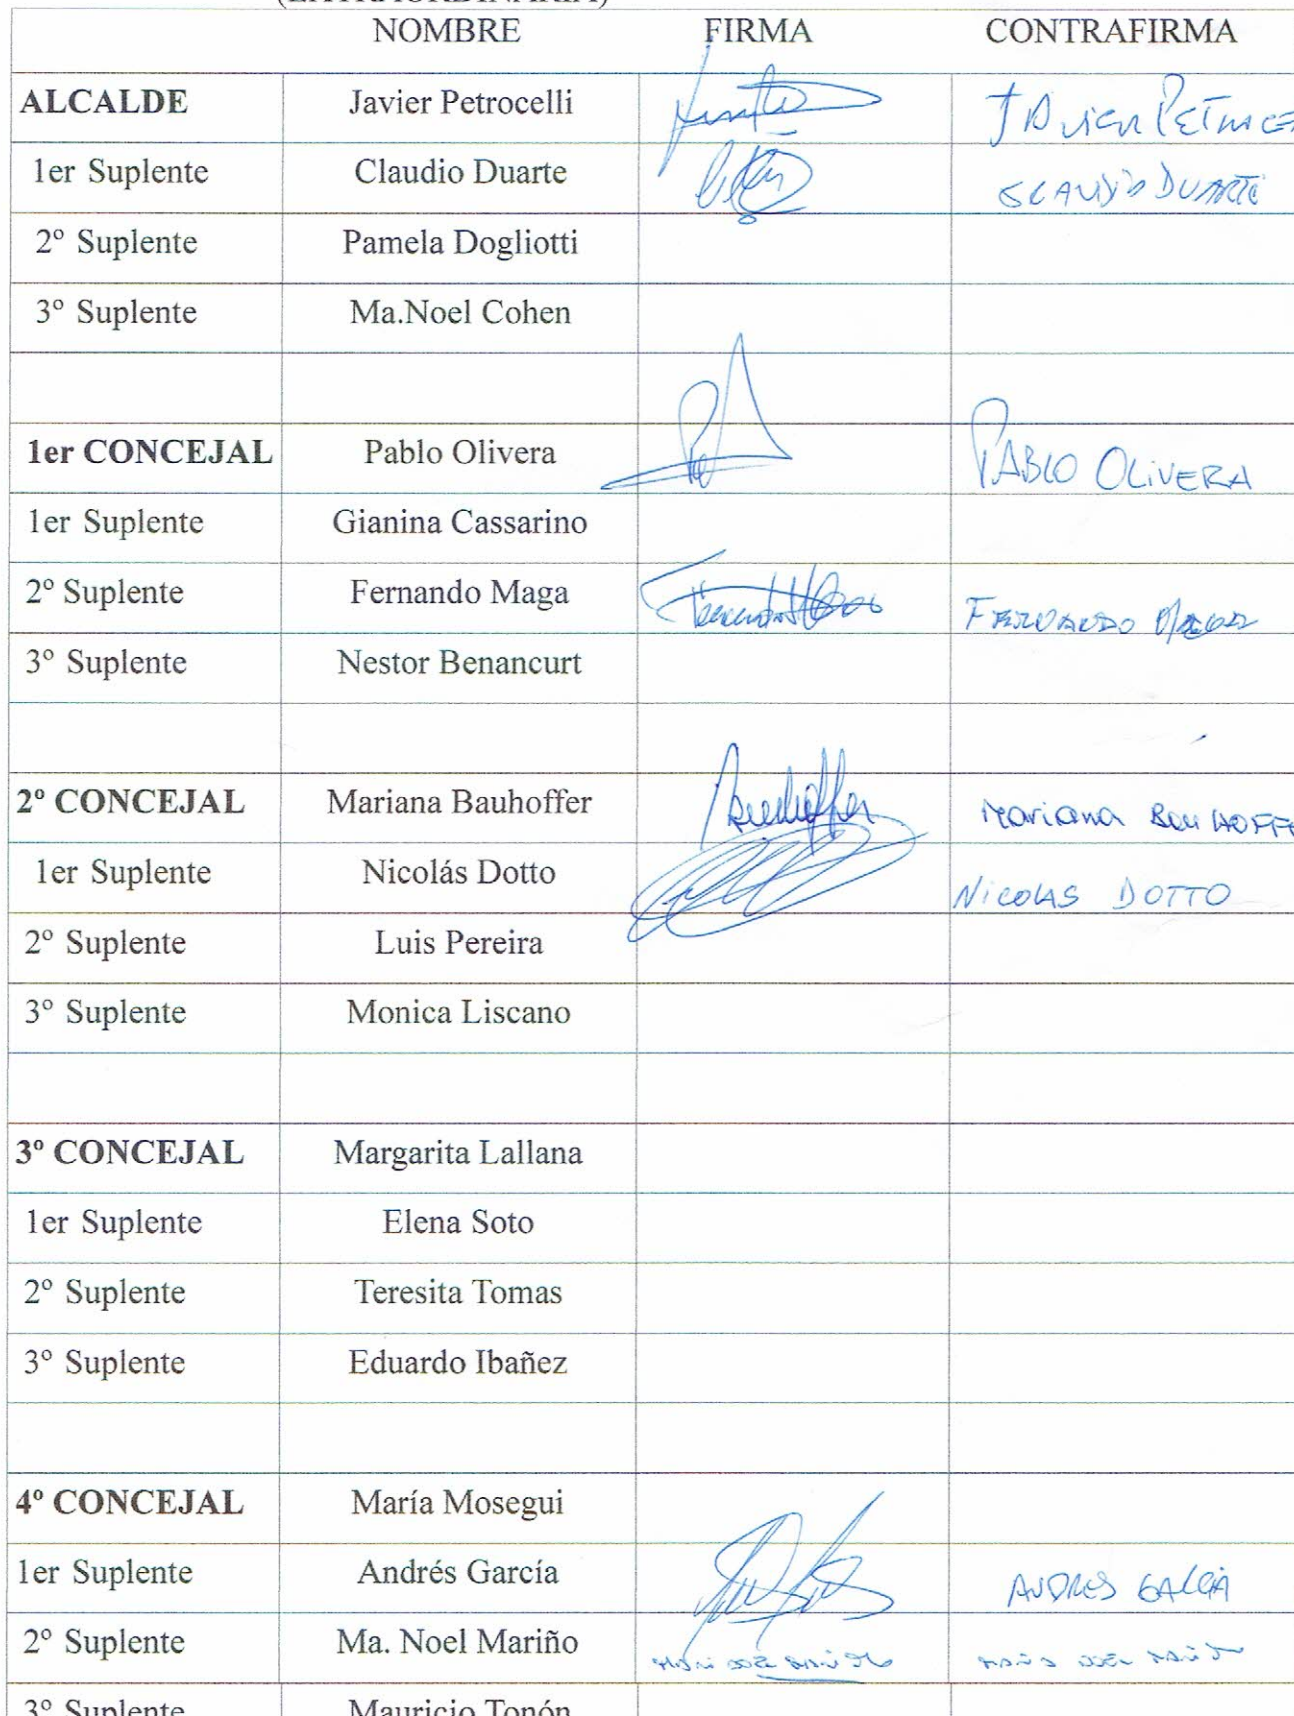 (EXTRAORDINARIA)
NOMBRE FIRMA CONTRAFIRMA
ALCALDE Javier Petrocelli Javier Petroce
1er Suplente Claudio Duarte CLAUDIO DUARTE
2º Suplente Pamela Dogliotti
3º Suplente Ma.Noel Cohen
1er CONCEJAL Pablo Olivera PABLO OLIVERA
1er Suplente Gianina Cassarino
2º Suplente Fernando Maga FERNANDO MAGA
3º Suplente Nestor Benancurt
2º CONCEJAL Mariana Bauhoffer Bauhoffer Mariana BauHOFFE
1er Suplente Nicolás Dotto NICOLAS DOTTO
2º Suplente Luis Pereira
3º Suplente Monica Liscano
3º CONCEJAL Margarita Lallana
1er Suplente Elena Soto
2º Suplente Teresita Tomas
3º Suplente Eduardo Ibañez
4º CONCEJAL María Mosegui
1er Suplente Andrés García ANDRES GARCIA
2º Suplente Ma. Noel Mariño
3º Suplente Mauricio Tonón